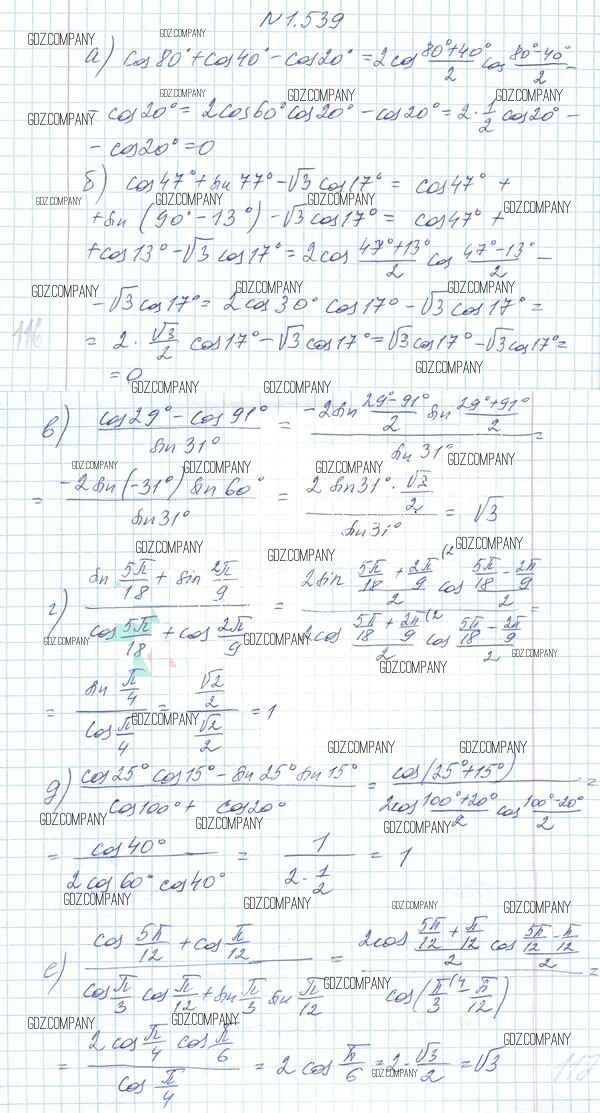 N 1.539
а) cos80° + cos40° - cos20° = 2cos (80°+40°)/2 cos (80°-40°)/2 -
- cos20° = 2cos60°cos20° - cos20° = 2·1/2 cos20° -
- cos20° = 0
б) cos47° + sin77° - √3 cos17° = cos47° +
+ sin(90°-13°) - √3 cos17° = cos47° +
+ cos13° - √3 cos17° = 2cos (47°+13°)/2 cos (47°-13°)/2 -
- √3 cos17° = 2cos30° cos17° - √3 cos17° =
= 2·√3/2 cos17° - √3 cos17° = √3 cos17° - √3 cos17° =
= 0
в) (cos29° - cos91°)/sin31° = (-2sin (29°-91°)/2 sin (29°+91°)/2)/sin31° =
= (-2sin(-31°) sin60°)/sin31° = (2sin31°·√2/2)/sin31° = √3
г) (sin 5π/18 + sin 2π/9)/(cos 5π/18 + cos 2π/9) = (2sin (5π/18 + 2π/9 (2)/2 cos (5π/18 - 2π/9)/2)/(2cos (5π/18 + 2π/9 (2)/2 cos (5π/18 - 2π/9)/2) =
= (sin π/4)/(cos π/4) = (√2/2)/(√2/2) = 1
д) (cos25° cos15° - sin25° sin15°)/(cos100° + cos20°) = cos(25°+15°)/(2cos (100°+20°)/2 cos (100°-20°)/2) =
= cos40°/(2cos60° cos40°) = 1/(2·1/2) = 1
е) (cos 5π/12 + cos π/12)/(cos π/3 cos π/12 + sin π/3 sin π/12) = (2cos (5π/12 + π/12)/2 cos (5π/12 - π/12)/2)/cos(π/3 (4 - π/12) =
= (2cos π/4 cos π/6)/cos π/4 = 2cos π/6 = 2·√3/2 = √3
GDZ.COMPANY